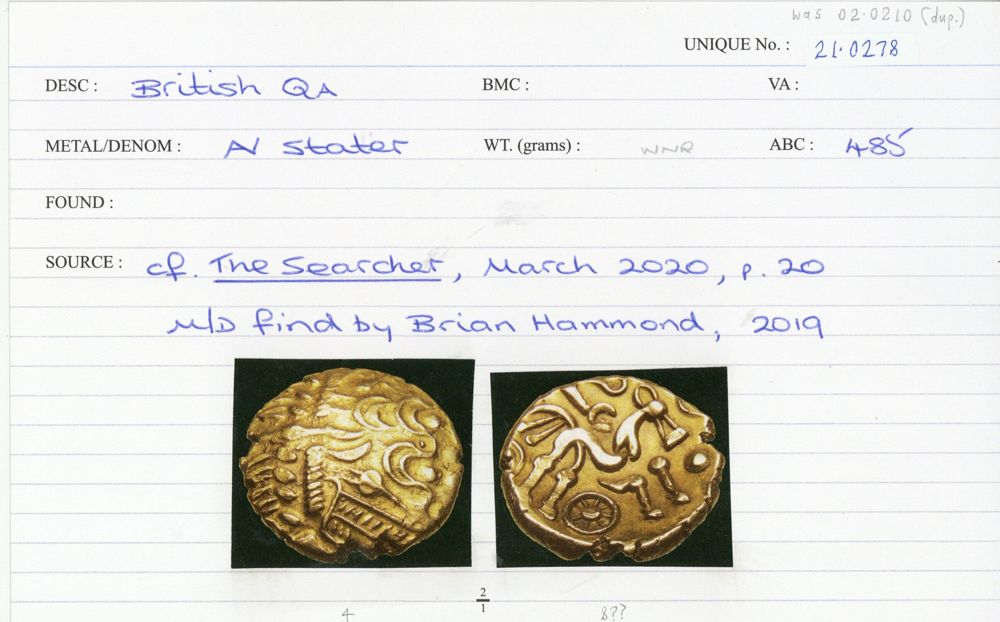 was 02.0210 (dup.)
UNIQUE No. : 21.0278
DESC : British QA BMC : VA :
METAL/DENOM : AV stater WT. (grams) : WNR ABC : 485
FOUND :
SOURCE : cf. The Searcher, March 2020, p. 20
M/D find by Brian Hammond, 2019
2
1
4 8??